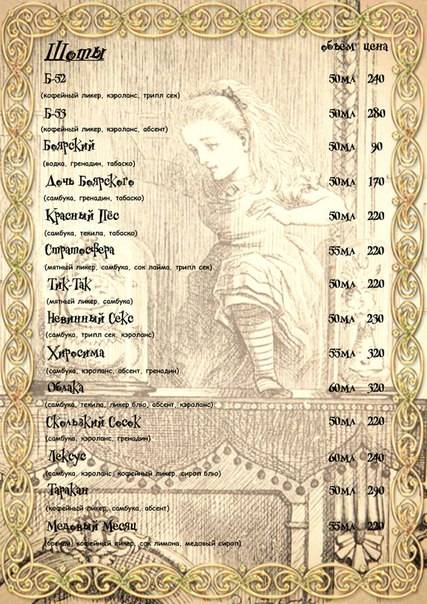 Шоты объем цена
Б-52 50мл 240
(кофейный ликер, кэроланс, трипл сек)
Б-53 50мл 280
(кофейный ликер, кэроланс, абсент)
Боярский 50мл 90
(водка, гренадин, табаско)
Дочь Боярского 50мл 170
(самбука, гренадин, табаско)
Красный Пёс 50мл 220
(самбука, текила, табаско)
Стратосфера 55мл 220
(мятный ликер, самбука, сок лайма, трипл сек)
Тик-Так 50мл 220
(мятный ликер, самбука)
Невинный Секс 50мл 230
(самбука, трипл сек, кэроланс)
Хиросима 55мл 320
(самбука, кэроланс, абсент, гренадин)
Облака 60мл 320
(самбука, текила, ликер блю, абсент, кэроланс)
Скользкий Сосок 50мл 220
(самбука, кэроланс, гренадин)
Лексус 60мл 240
(самбука, кэроланс, кофейный ликер, сироп блю)
Таракан 50мл 290
(кофейный ликер, самбука, абсент)
Медовый Месяц 55мл 220
(бренди, кофейный ликер, сок лимона, медовый сироп)